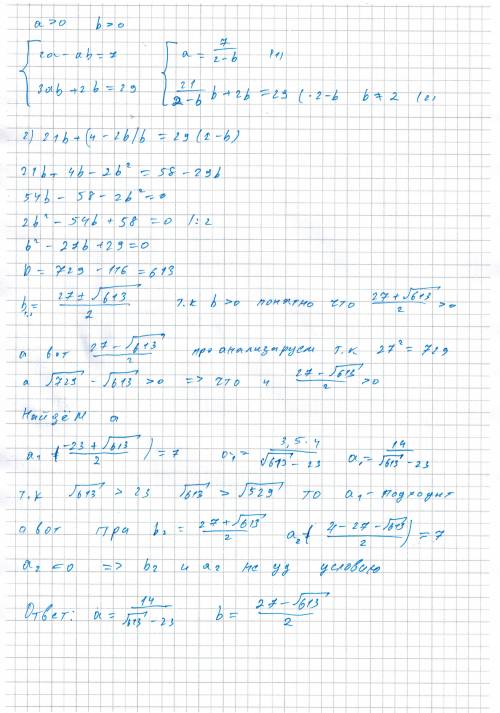 a>0 b>0
{2a-ab=7 {a=7/(2-b) (1)
{3ab+2b=29 {21/(2-b) b+2b=29 (·2-b b≠2 (2)
2) 21b+(4-2b)b=29(2-b)
21b+4b-2b²=58-29b
54b-58-2b²=0
2b²-54b+58=0 /:2
b²-27b+29=0
D=729-116=613
b₁,₂=(27±√613)/2 т.к b>0 понятно что (27+√613)/2>0
а вот (27-√613)/2 проанализируем т.к 27²=729
а √729-√613>0 => что и (27-√613)/2>0
Найдём a
a₁·((-23+√613)/2)=7 a₁=(3,5·4)/(√613-23) a₁=14/(√613-23)
т.к √613>23 √613>√529 то a₁-подходит
а вот при b₂=(27+√613)/2 a₂·((4-27-√613)/2)=7
a₂<0 => b₂ и a₂ не уд условию
Ответ: a=14/(√613-23) b=(27-√613)/2